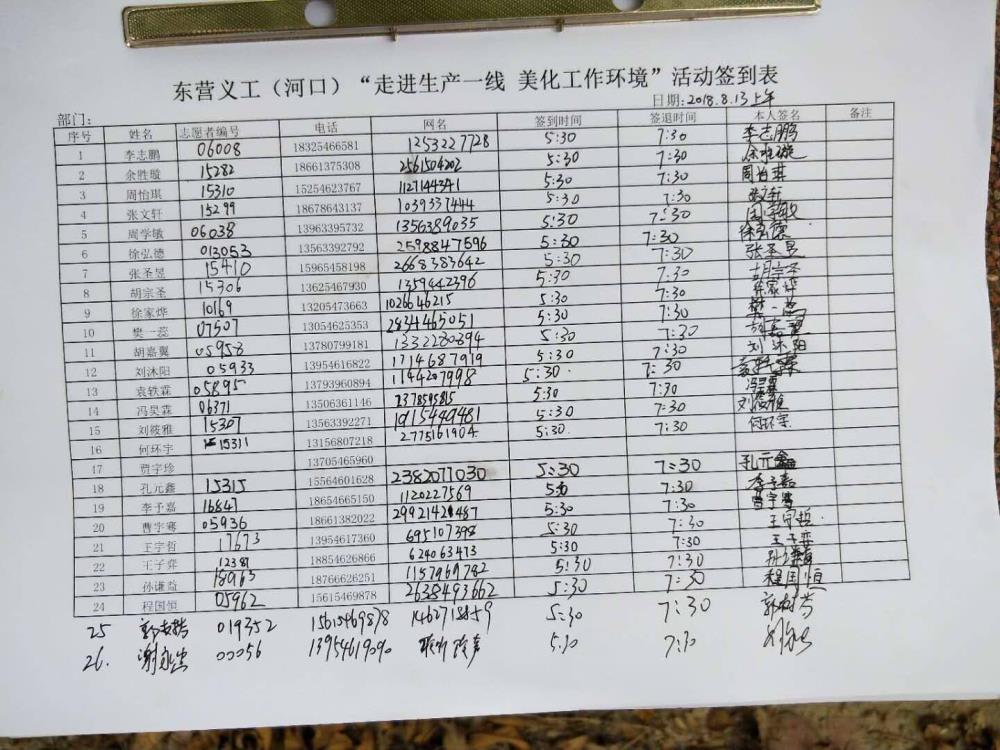 东营义工（河口）“走进生产一线 美化工作环境”活动签到表
部门： 日期: 2018.8.13上午
序号 姓名 志愿者编号 电话 网名 签到时间 签退时间 本人签名 备注
1 李志鹏 06008 18325466581 1253227728 5:30 7:30 李志鹏
2 余胜璇 15282 18661375308 2561504202 5:30 7:30 余胜璇
3 周怡琪 15310 15254623767 1127144341 5:30 7:30 周怡琪
4 张文轩 15299 18678643137 1039337444 5:30 7:30
5 周学敏 06038 13963395732 1356389035 5:30 7:30 周学敏
6 徐弘德 013053 13563392792 2598847596 5:30 7:30 徐弘德
7 张圣昱 15410 15965458198 2668383642 5:30 7:30 张圣昱
8 胡宗圣 15306 13625467930 1359442396 5:30 7:30 胡宗圣
9 徐家烨 10169 13205473663 1026646215 5:30 7:30 徐家烨
10 樊一蕊 07507 13054625353 2834465051 5:30 7:30 樊一蕊
11 胡嘉翼 05958 13780799181 1332280894 5:30 7:30 胡嘉翼
12 刘沐阳 05933 13954616822 1714687919 5:30 7:30 刘沐阳
13 袁轶霖 05895 13793960894 1144207998 5:30 7:30 袁轶霖
14 冯昊霖 06371 13506361146 2378595815 5:30 7:30 冯昊霖
15 刘筱雅 15307 13563392271 1915449481 5:30 7:30 刘筱雅
16 何环宇 15311 13156807218 2775161904 5:30 7:30 何环宇
17 贾字珍 13705465960
18 孔元鑫 15315 15564601628 2382077030 5:30 7:30 孔元鑫
19 李予嘉 16847 18654665150 1120227569 5:30 7:30 李予嘉
20 曹字骞 05936 18661382022 2992142487 5:30 7:30 曹字骞
21 王宇哲 17673 13954617360 695107398 5:30 7:30 王宇哲
22 王子弈 12381 18854626866 624063473 5:30 7:30 王子弈
23 孙谦益 18963 18766626251 1157969782 5:30 7:30 孙谦益
24 程国恒 05962 15615469878 2638493662 5:30 7:30 程国恒
25 019352 15615469878 1462718859 5:30 7:30
26. 谢永忠 00056 13954619090 5:30 7:30